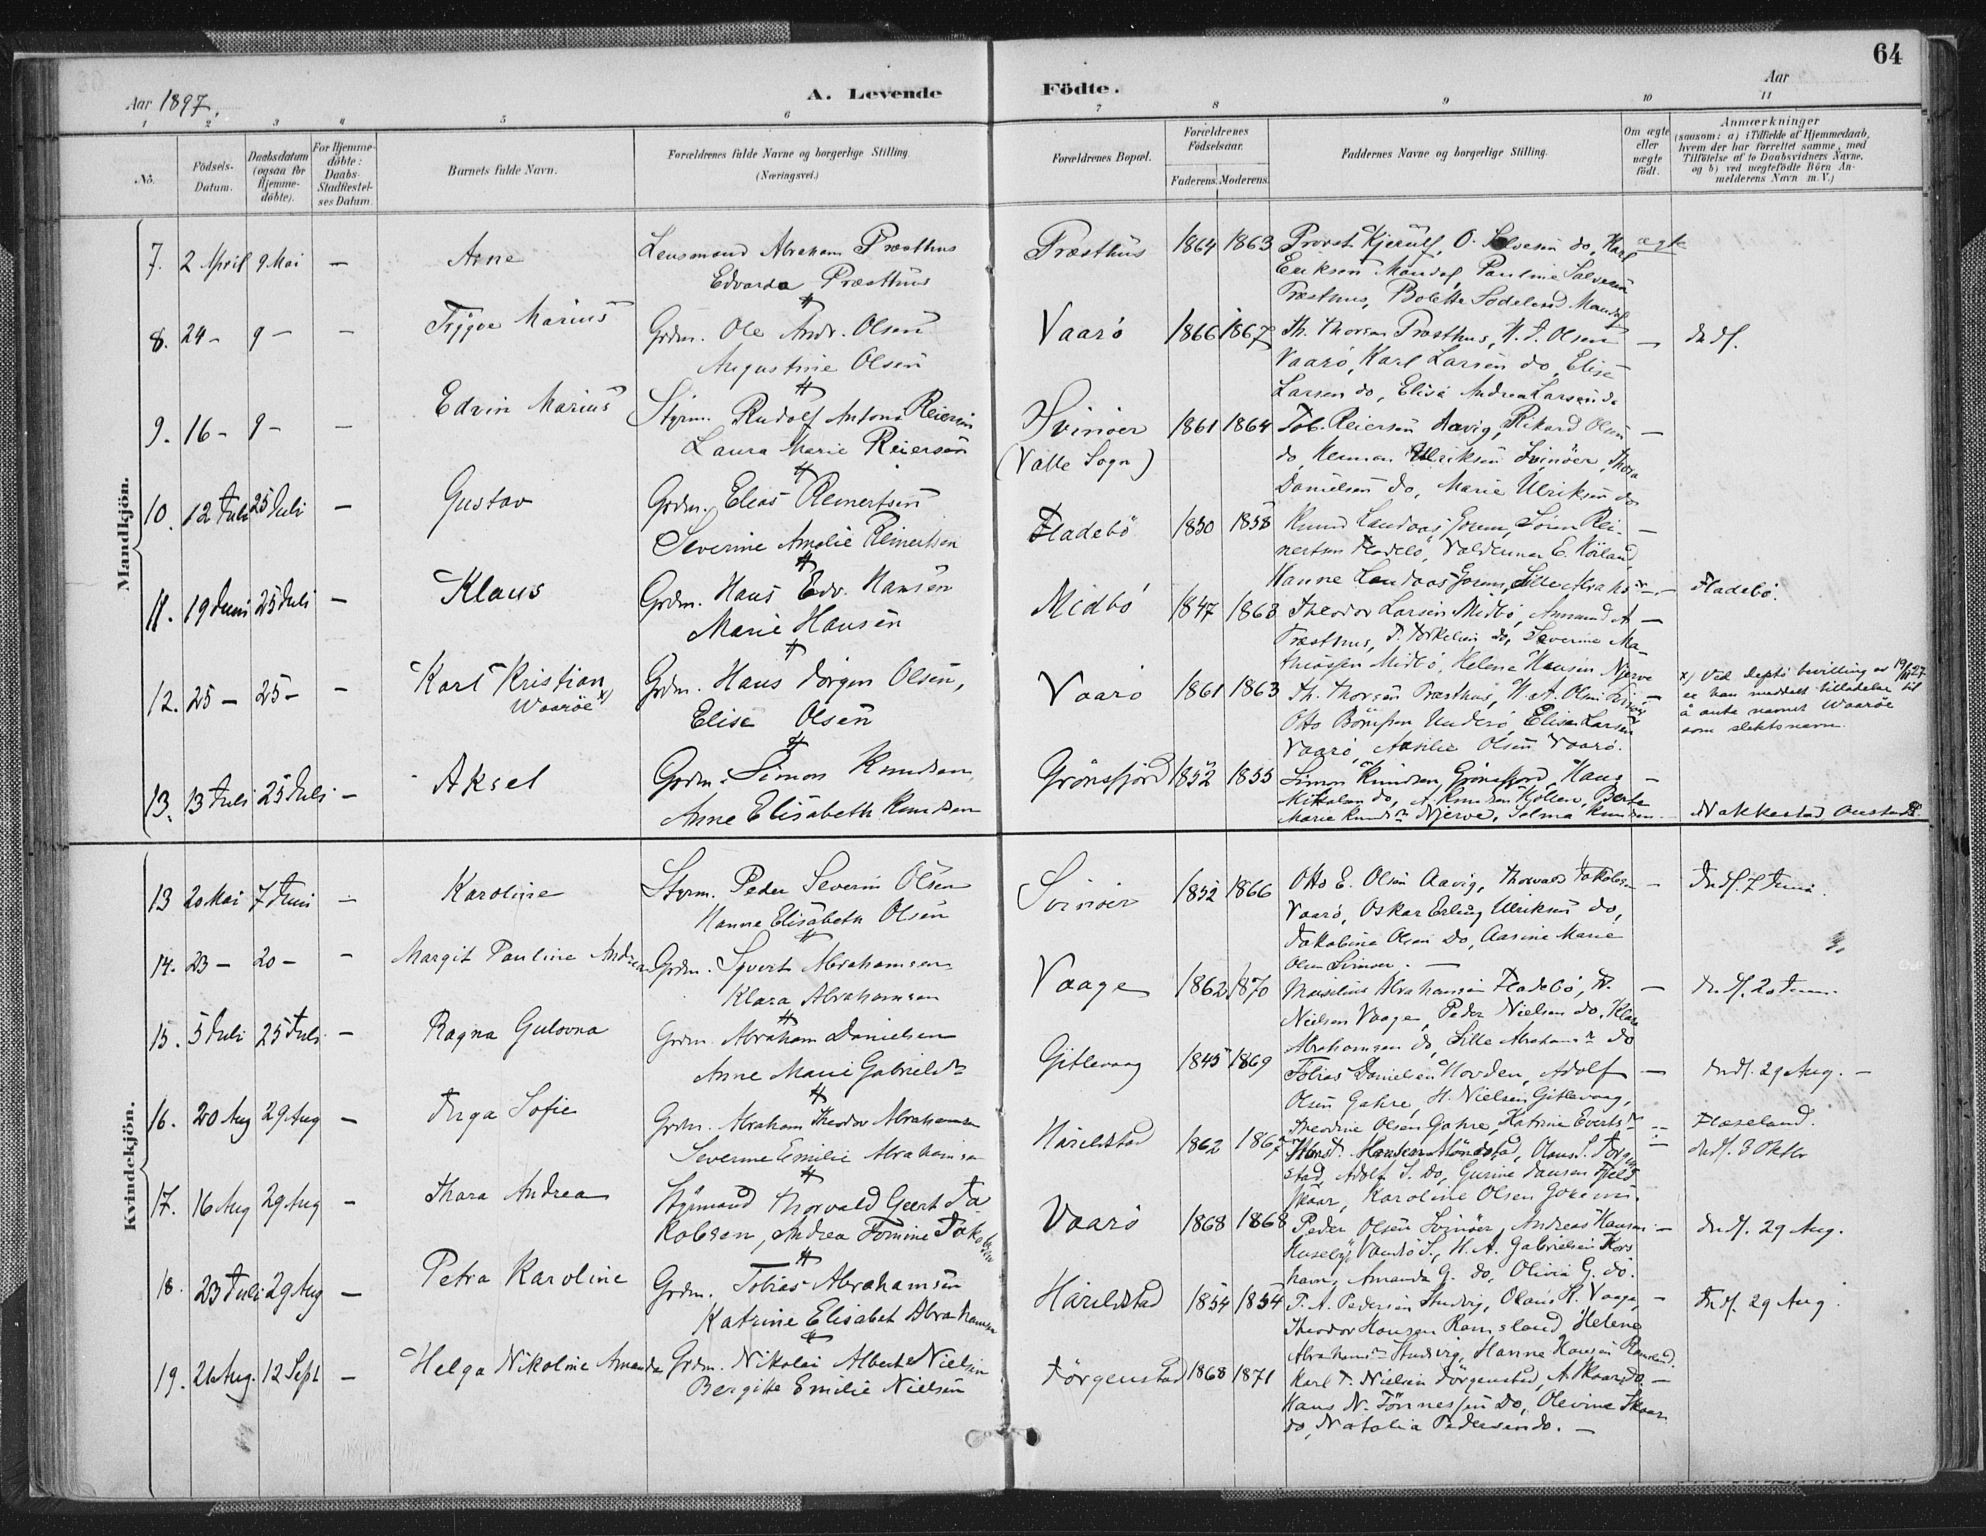 64
Aar 1897.
A. Levende Födte.
Aar
1 2 3 4 5 6 7 8 9 10 11
No.
Födsels-Datum.
Daabsdatum (ogsaa for Hjemme-döbte).
For Hjemme-döbte: Daabs-Stadfæstel-ses Datum.
Barnets fulde Navn.
Forældrenes fulde Navne og borgerlige Stilling.
(Næringsvei.)
Forældrenes Bopæl.
Forældrenes Födselsaar.
Faderens. Moderens.
Faddernes Navne og borgerlige Stilling.
Om ægte eller uægte födt.
Anmærkninger
(saasom: a) i Tilfælde af Hjemmedaab,
hvem der har forrettet samme, med
Tilföielse af to Daabsvidners Navne,
og b) ved uægtefödte Börn An-
melderens Navn m. V.)
Mandkjön.
7. 2 April 9 Mai — Arne
Lensmand Abraham Præsthus
Edvarda Præsthus
Præsthus 1864 1863
Provst Kjerulf, O. Salvesen do, Karl
Eriksen Mandal, Pauline Salvesen
Præsthus, Bolette Sodeland Mandal
ægte
8. 24 - 9 - - Trygve Marius
Grdm. Ole Andr. Olsen
Augustine Olsen
Vaarö 1866 1867
Th. Thorsen Præsthus, H. J. Olsen
Vaarö, Karl Larsen do, Elise
Larsen do, Elise Andrea Larsen do
— Indf.
9. 16 - 9 - — Edvin Marius
Styrm. Rudolf Antons Reiersen
Laura Marie Reiersen
Svinöer
(Valle Sogn)
1861 1864
Tob. Reiersen Aavig, Rikard Olsen
do, Herman Ulriksen Svinöer, Thora
Danielsen do, Marie Ulriksen do
—
10. 12 Juli 25 Juli — Gustav
Grdm. Elias Reinertsen
Severine Amalie Reinertsen
Fladebö 1850 1858
Knud Landaas Gorem, Sören Rei-
nertsen Fladebö, Valdemar E. Köland,
Hanne Landaas Gorem, Sille Abrahsn
— Fladebö.
11. 19 Juni 25 Juli — Klaus
Grdm. Hans Edv. Hansen
Marie Hansen
Midbö 1847 1863
Theodor Larsen Midbö, Anmund A
Præsthus, T. Torkelsen do, Severine Ma-
thiassen Midbö, Helene Hansen Njerve
—
12. 25 — 25 - - Karl Kristian
Waaröe x)
Grdm. Hans Jörgen Olsen,
Elise Olsen
Vaarö 1861 1863
Th. Thorsen Præsthus, H. A. Olsen Svinör,
Otto Börresen Underö, Elisa Larsen
Vaarö, Amilie Olsen Vaarö.
—
x) Ved depts bevilling av 19/11 27
er han meddelt tilladelse til
å anta navnet Waaröe
som slektsnavn.
13. 13 Juli 25 Juli — Aksel
Grdm. Simon Knudsen,
Anne Elisabeth Knudsen
Grönsfjord 1852 1855
Simon Knudsen Grönsfjord, Hans
Mikkelsen do, A. Knudsen Kjöllen, Berte
Marie Knudsn Njerve, Selma Knudsen
—
Kvindekjön.
13 20 Mai 7 Juni — Karoline
Styrm. Peder Severin Olsen
Hanne Elisabeth Olsen
Svinöer 1852 1866
Otto E. Olsen Aavig, Thorvald Jakobsen
Vaarö, Oskar Erling Ulriksen do,
Jakobine Olsen do, Aasine Marie
Olsen Svinöer. —
— Indf. 7 Juni.
14. 23 — 20 — - Margit Pauline Andrea
Grdm. Syvert Abrahamsen
Klara Abrahamsen
Vaage 1862 1870
Maselius Abrahamsen Fladebö, N.
Nielsen Vaage, Peder Nielsen do, Klara
Abrahamsen do, Sille Abrahamsn do
— Indf. 20 Juni
15. 5 Juli 25 Juli — Ragna Gulovna
Grdm. Abraham Danielsen
Anne Marie Gabrielsn
Gitlevaag 1845 1869
Tobias Danielsen Hovden, Adolf
Olsen Gahre, H. Nielsen Gitlevaag,
Theodine Olsen Gahre, Katrine Evertsn
— Indf. 29 Aug. —
16. 20 Aug 29 Aug — Inga Sofie
Grdm. Abraham Theodor Abrahamsen
Severine Emilie Abrahamsen
Harildstad 1862 1867
stad, Adolf S. do, Gurine Jansen Fjeld
skaar, Karoline Olsen Gorem.
Indf. 3 Oktbr
17. 16 Aug 29 Aug — Thora Andrea
Styrmand Thorvald Geert Ja-
kobsen, Andrea Tomine Jakobsen
Vaarö 1868 1868
Peder Olsen Svinöer, Andreas Hansen
Huseby Vansö S., H. A. Gabrielsen Kors
havn, Amanda G. do, Olivia G. do.
— Indf. 29 Aug.
18. 23 Juli 29 Aug — Petra Karoline
Grdm. Tobias Abrahamsen
Katrine Elisabet Abrahamsen
Harildstad 1854 1854
P. A. Pedersen Studvig, Olaus K. Vaage,
Theodor Hansen Ramsland, Helene
Abrahamsn Studvig, Hanne Hansen Ramsland.
— Indf. 29 Aug.
19. 21 Aug. 12 Sept — Helga Nikoline Amanda
Grdm. Nikolai Albert Nielsen
Bergitte Emilie Nielsen
Jörgenstad 1868 1871
Karl T. Nielsen Jörgenstad, A. Skaar do.
Hans N. Tönnessen do, Olevine Skaar
do, Natalia Pedersen do. —
—